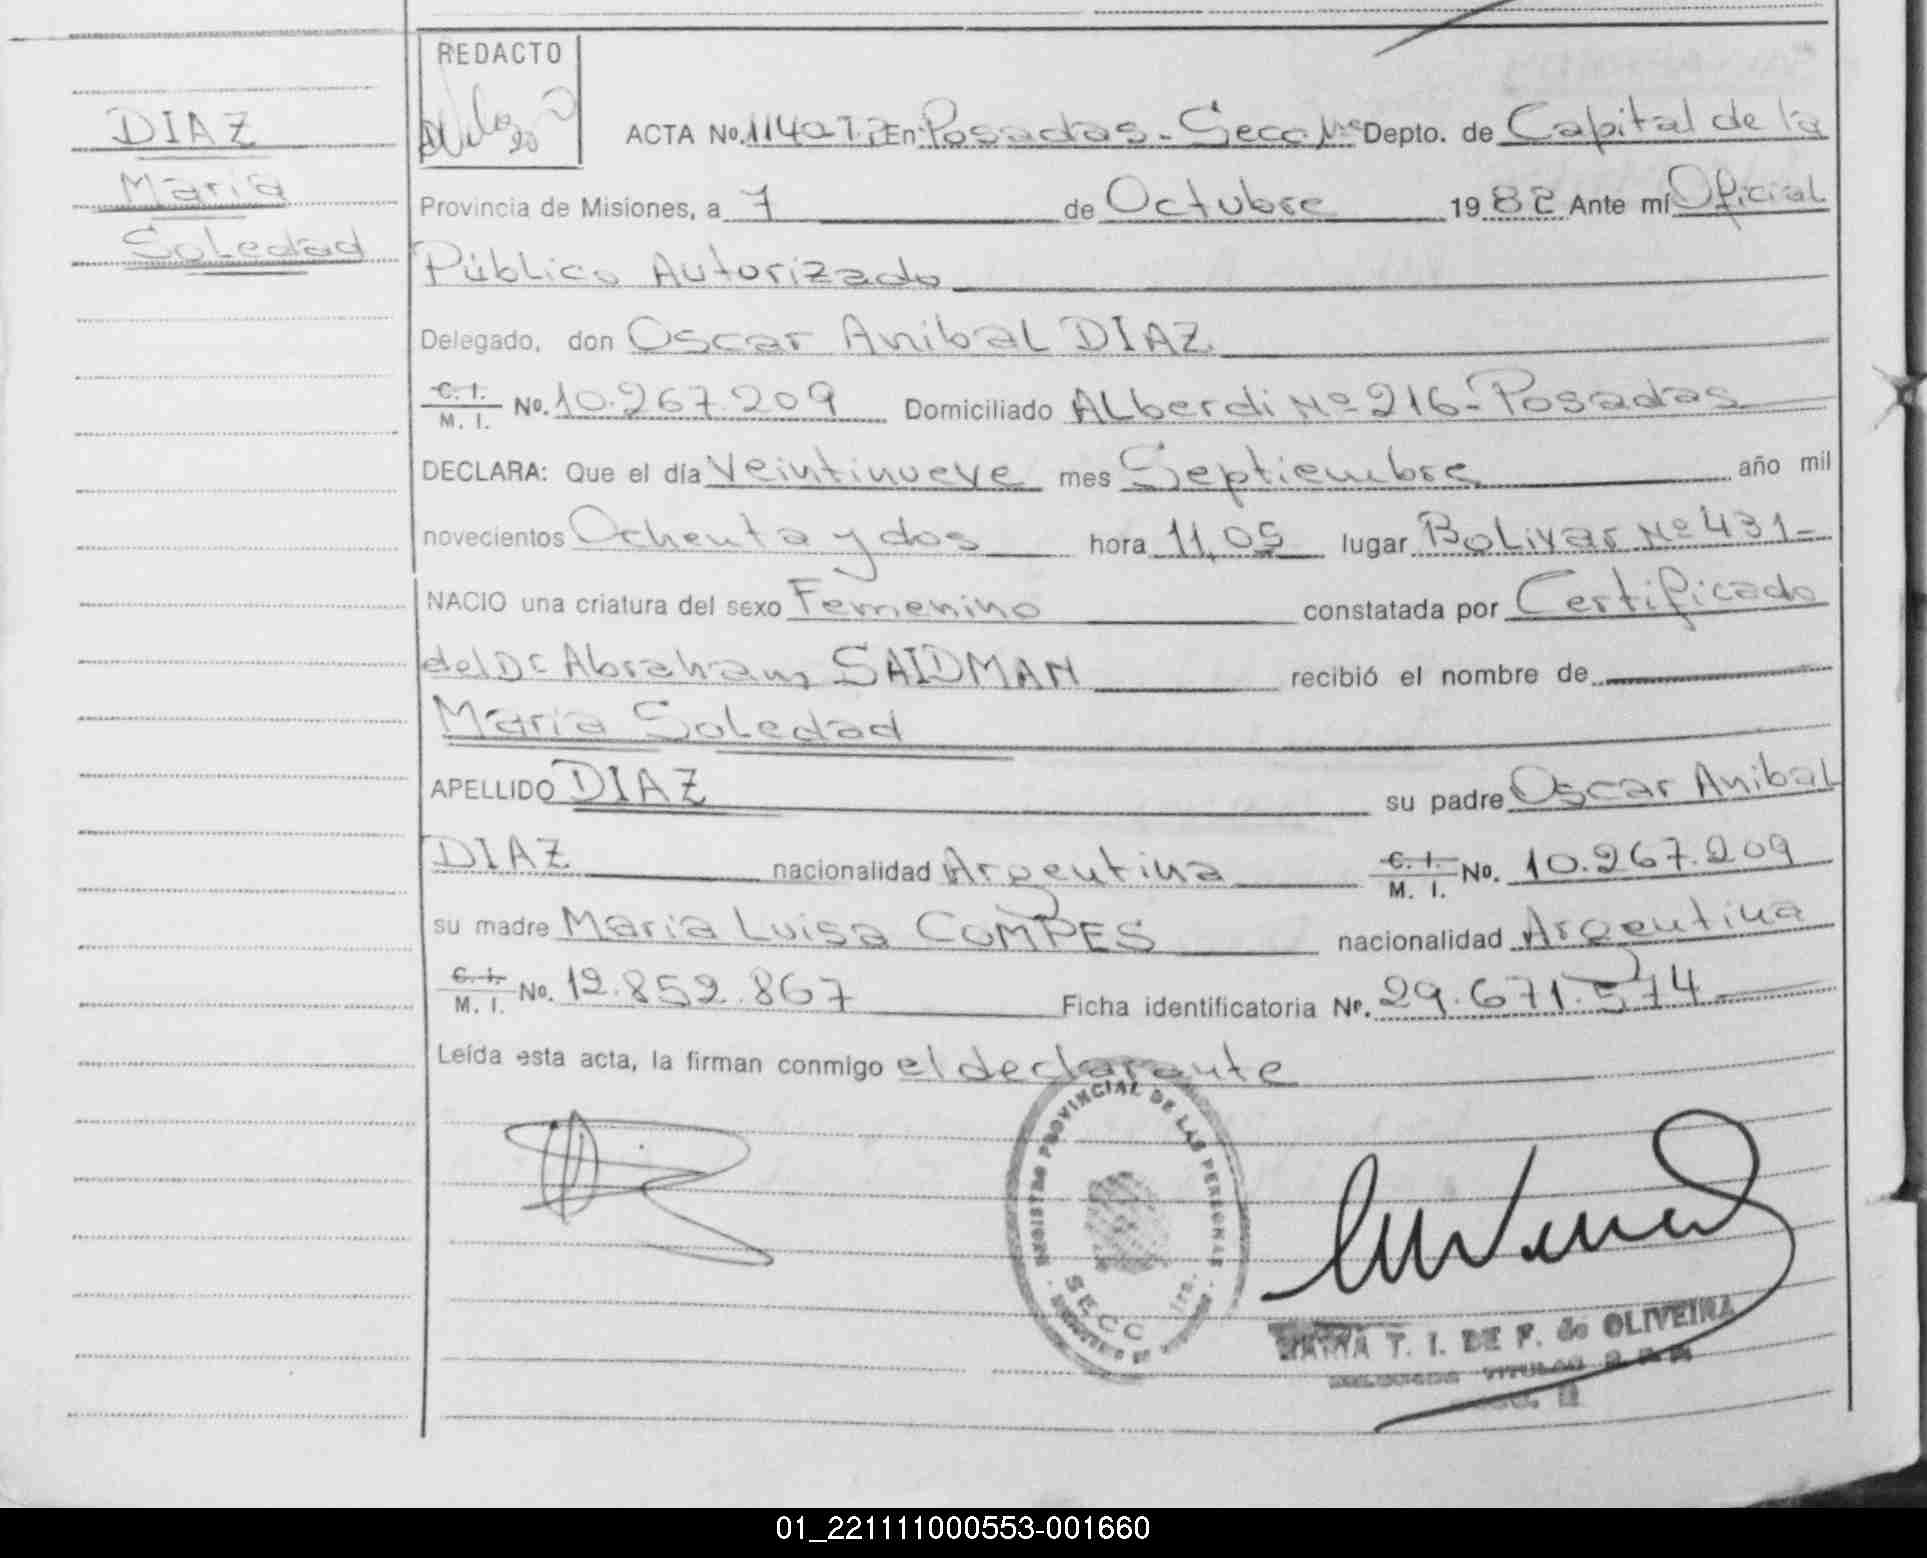 DIAZ
Maria
Soledad
REDACTO
ACTA No. 1140 T. En Posadas - Secc 1ra Depto. de Capital de la
Provincia de Misiones, a 7 de Octubre 1982 Ante mí Oficial
Público Autorizado
Delegado, don Oscar Anibal DIAZ
C. I.
M. I. No. 10.267.209 Domiciliado ALberdi Nº 216 - Posadas
DECLARA: Que el día Veintinueve mes Septiembre año mil
novecientos Ochenta y dos hora 11,05 lugar BoLivar Nº 431 -
NACIO una criatura del sexo Femenino constatada por Certificado
del Dr Abraham SAIDMAN recibió el nombre de
Maria Soledad
APELLIDO DIAZ su padre Oscar Anibal
DIAZ nacionalidad Argentina C. I.
M. I. No. 10.267.209
su madre Maria Luisa COMPES nacionalidad Argentina
C. I.
M. I. No. 12.852.867 Ficha identificatoria Nº. 29.671.574
Leída esta acta, la firman conmigo el declarante
REGISTRO PROVINCIAL DE LAS PERSONAS
SECC 1ra.
T. I. DE F. de OLIVEIRA
01_221111000553-001660